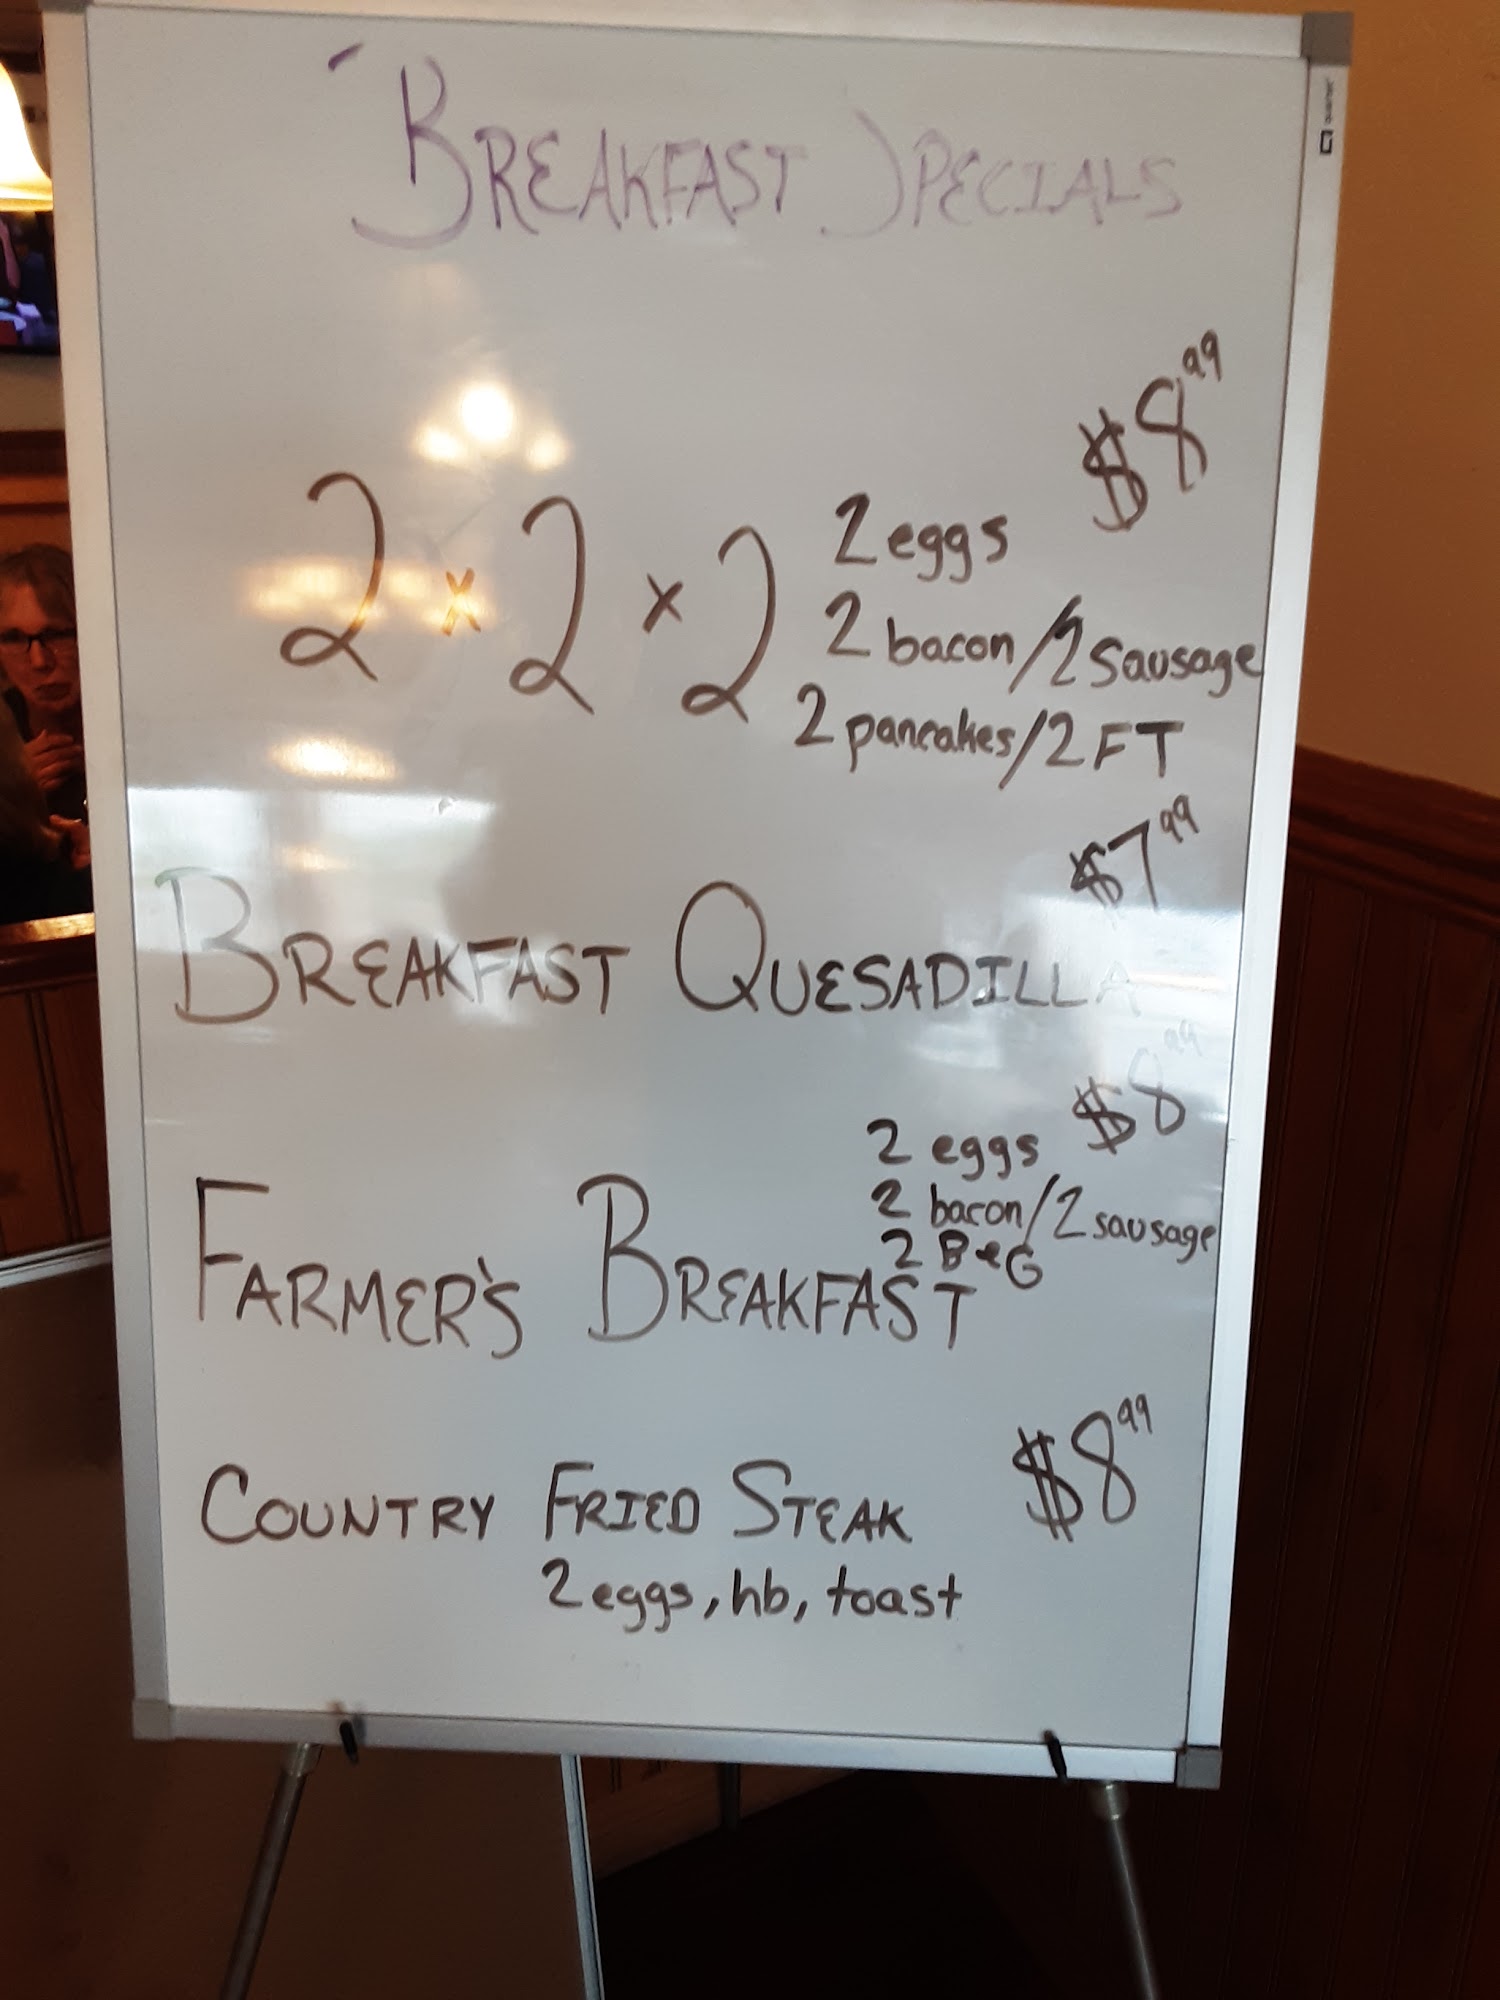 BREAKFAST SPECIALS
$8.99
2 x 2 x 2
2 eggs
2 bacon/2 sausage
2 pancakes/2 FT
$7.99
BREAKFAST QUESADILLA
$8.99
2 eggs
2 bacon/2 sausage
2 B&G
FARMER'S BREAKFAST
COUNTRY FRIED STEAK $8.99
2 eggs, hb, toast
quartet